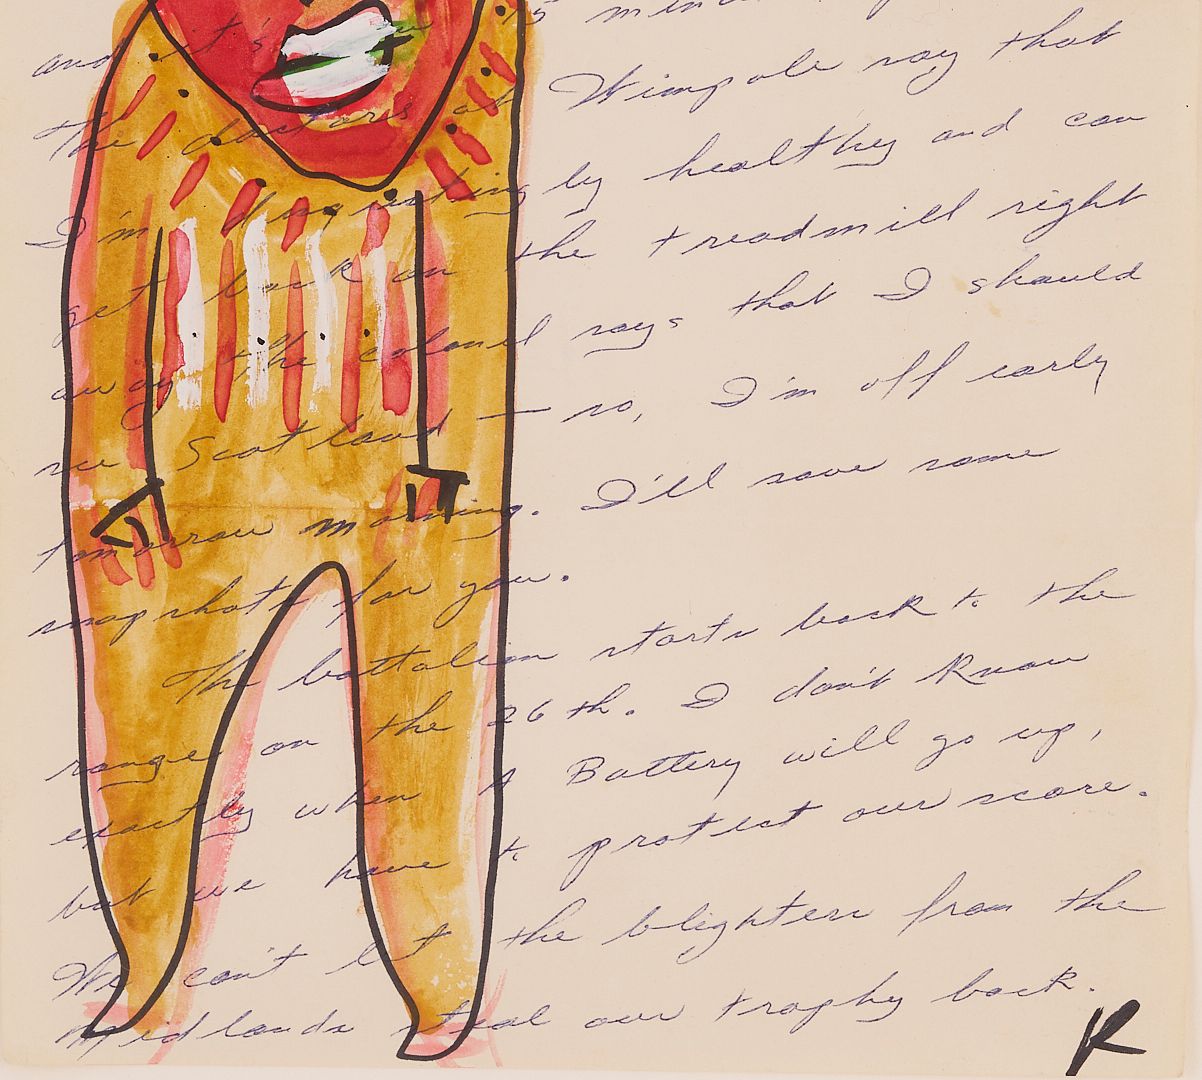 and it's 15 min
The doctors at Wimpole say that
I'm disgustingly healthy and can
get back on the treadmill right
away. The colonel says that I should
see Scotland — so, I'm off early
tomorrow morning. I'll save some
snapshots for you.
The battalion starts back to the
range on the 26th. I don't know
exactly when A Battery will go up,
but we have to protect our score.
We can't let the blighters from the
Midlands steal our trophy back.
R